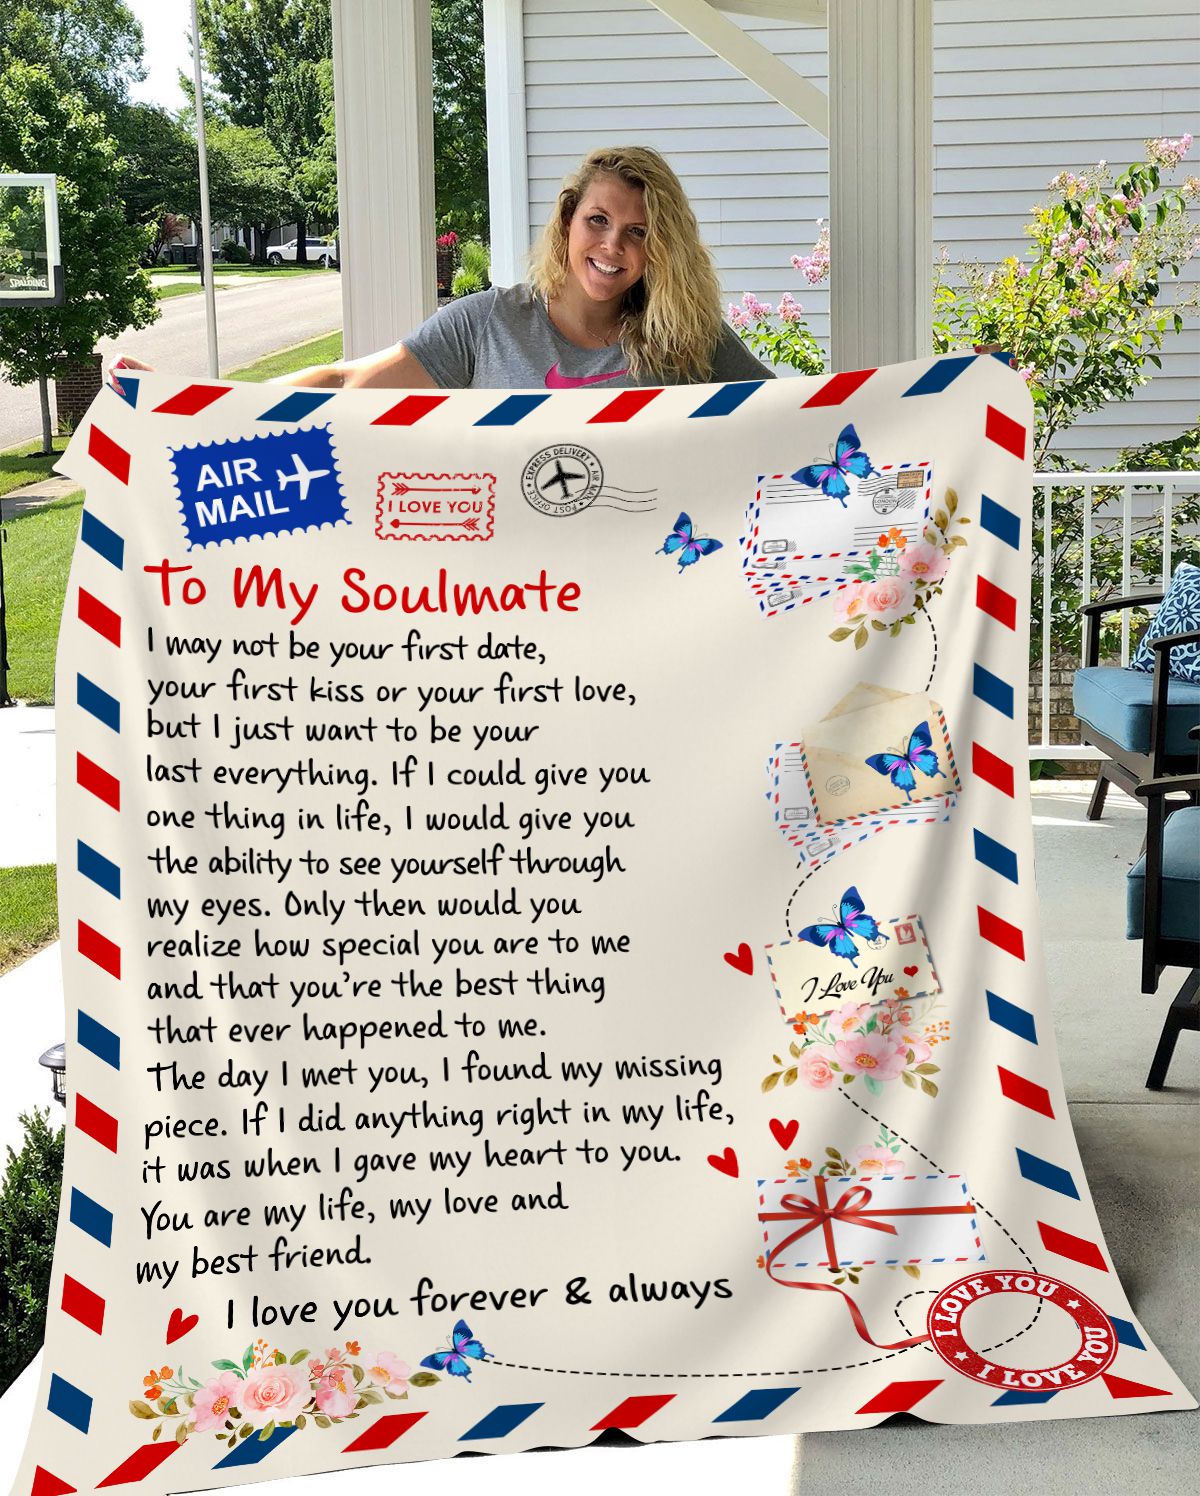 SPALDING
AIR
MAIL
I LOVE YOU
EXPRESS DELIVERY
AIR MAIL
POST OFFICE
LONDON
To My Soulmate
I may not be your first date,
your first kiss or your first love,
but I just want to be your
last everything. If I could give you
one thing in life, I would give you
the ability to see yourself through
my eyes. Only then would you
realize how special you are to me
and that you're the best thing
that ever happened to me.
The day I met you, I found my missing
piece. If I did anything right in my life,
it was when I gave my heart to you.
You are my life, my love and
my best friend.
I love you forever & always
I Love You
I LOVE YOU
I LOVE YOU